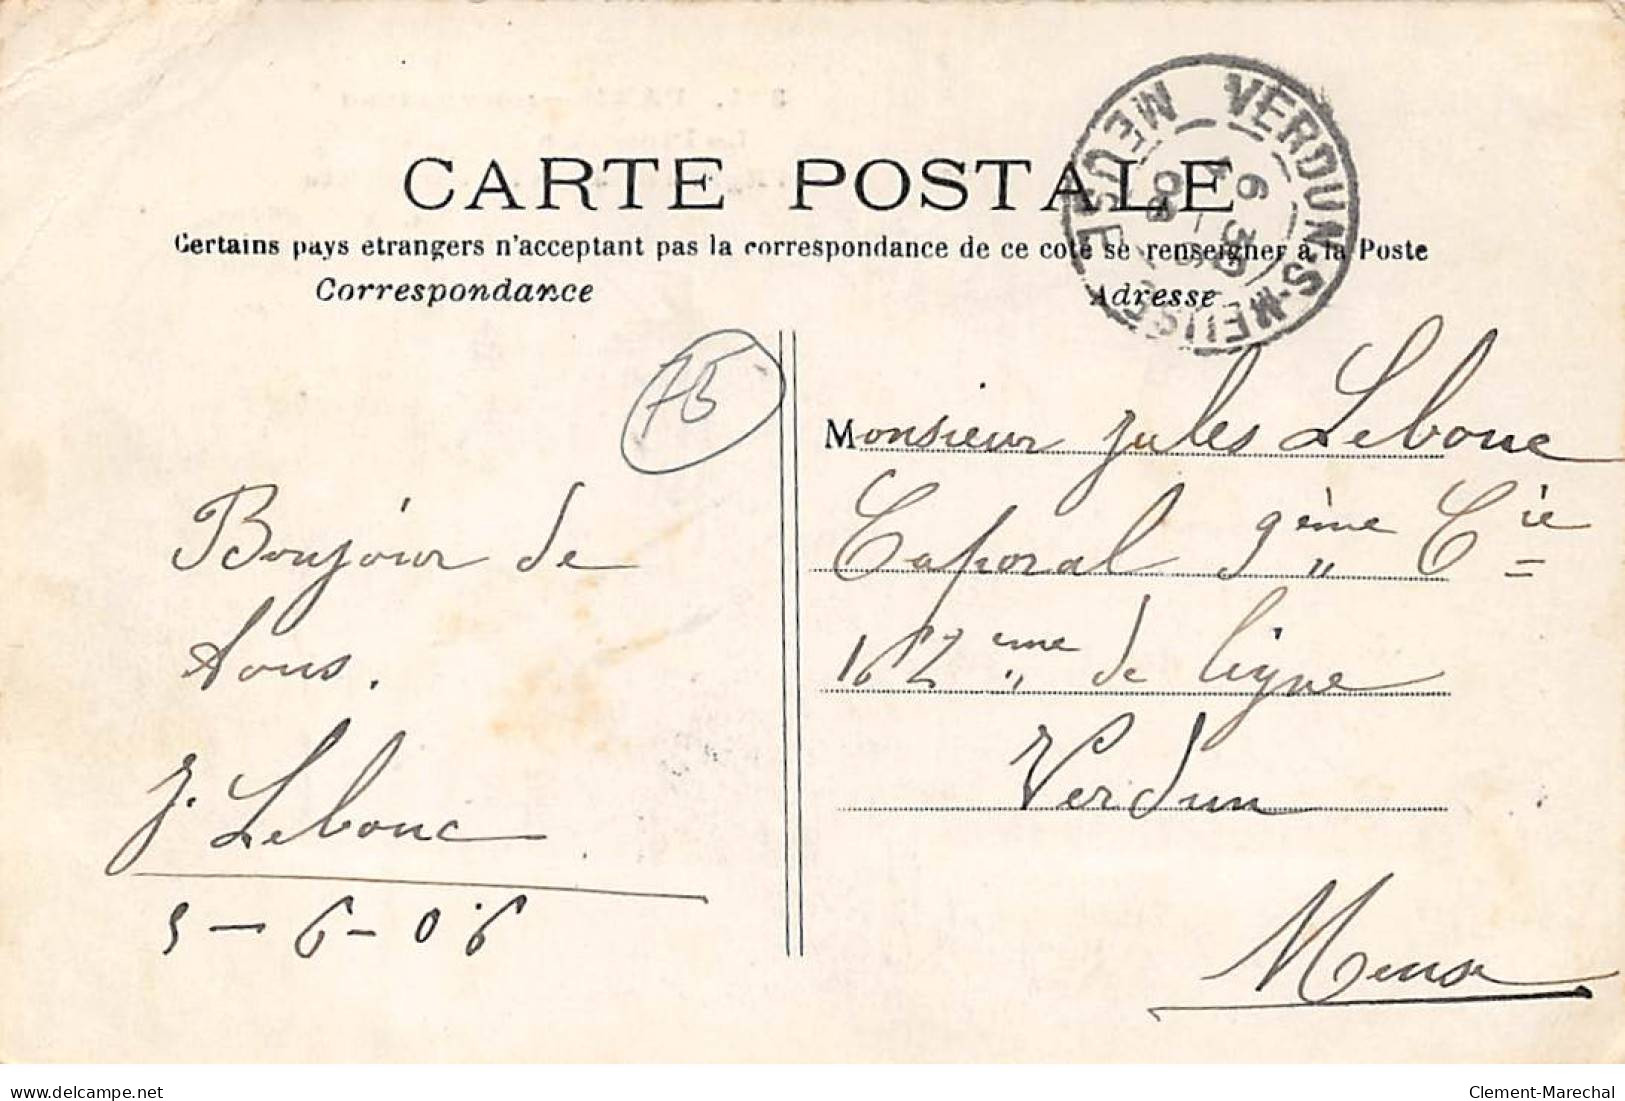 CARTE POSTALE
Certains pays etrangers n'acceptant pas la correspondance de ce coté se renseigner à la Poste
Correspondance
Adresse
VERDUN-S-MEUSE
MEUSE
6 35
75
Monsieur Jules Lebouc
Caporal 9ème Cie
162 eme de ligne
Verdun
Meuse
Bonjour de
tous.
J. Lebouc
5-6-06
delcampe.net
Clement-Marechal